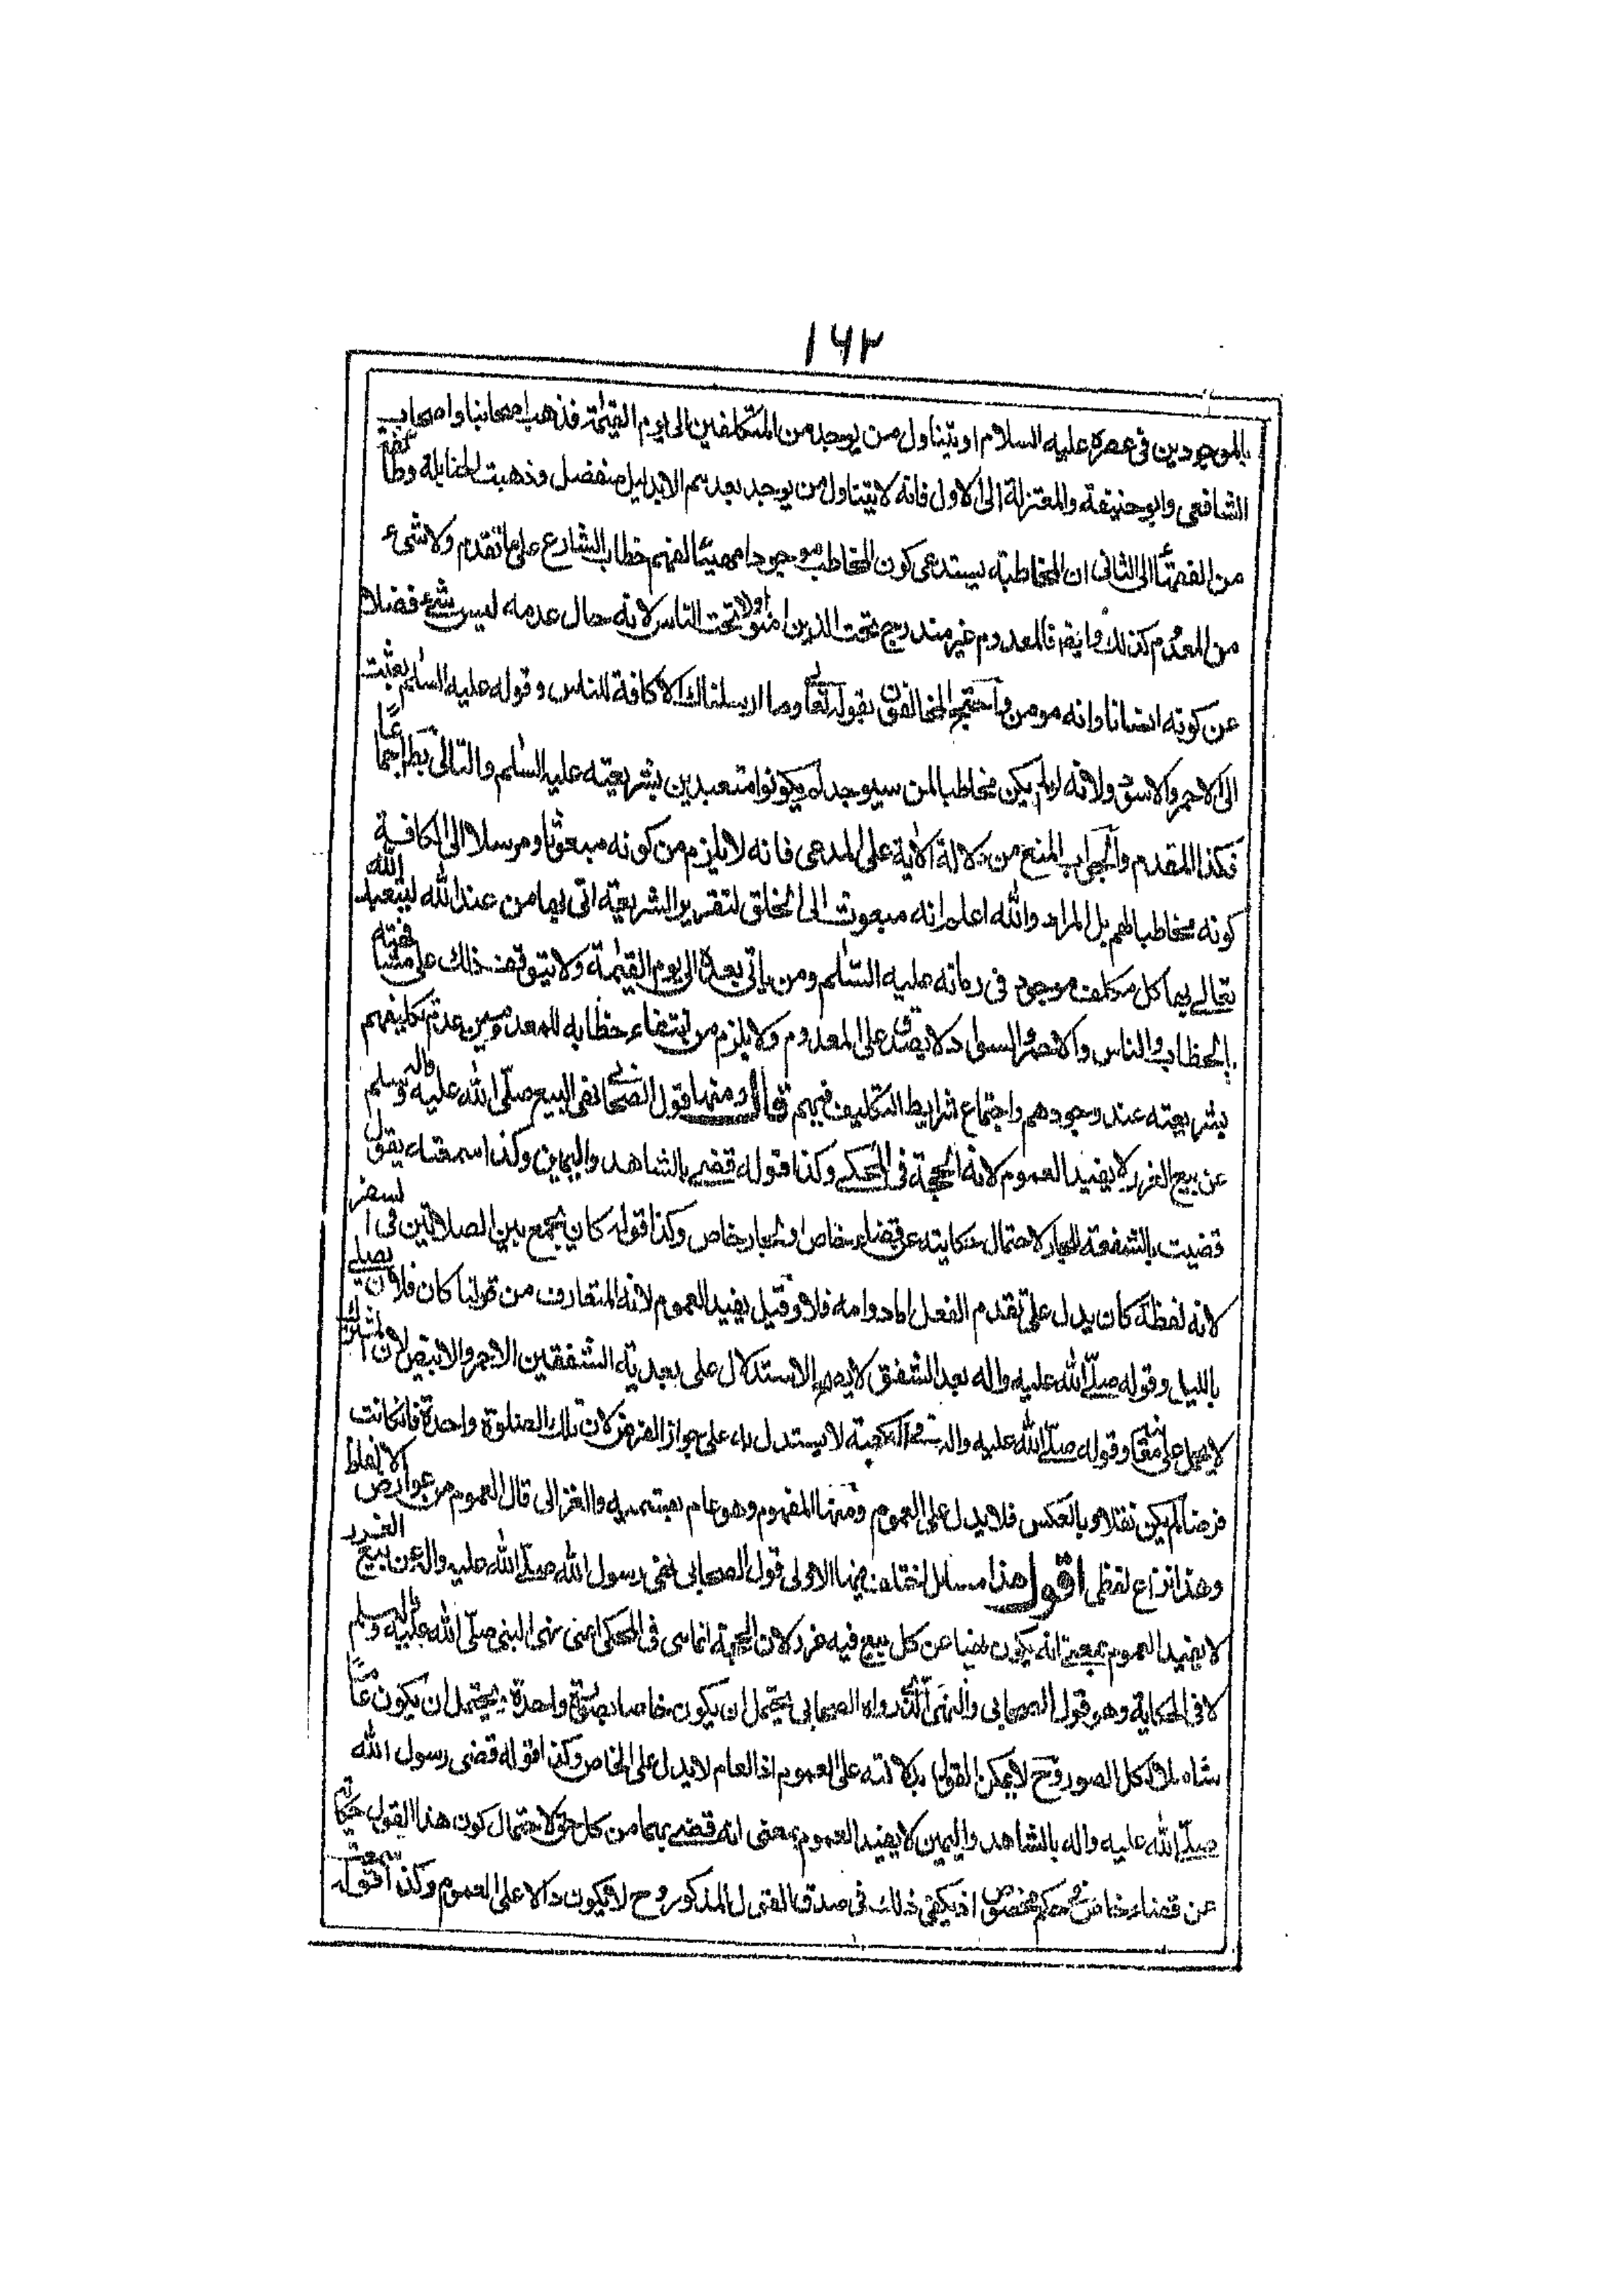 ١٦٢
بالموجودين في عصره عليه السلام او يتناول من يوجد من المتكلفين الى يوم القيمة فذهب اصحابنا واصحاب
الشافعي وابوحنيفة والمعتزلة الى الاول فانه لا يتناول من يوجد بعدهم الا بدليل منفصل وذهبت الحنابلة وطائفة
من الفقهاء الى الثاني ان المخاطبة يستدعى كون المخاطب موجودا مهيئا لفهم خطاب الشارع على ما تقدم ولا شىء
من المعدوم كذلك وايضا فالمعدوم غير مندرج تحت الذين امنوا ولا تحت الناس لانه حال عدمه ليس شىء فضلا
عن كونه انسانا وانه مومن واحتج المخالفون بقوله تعالى وما ارسلناك الا كافة للناس وقوله عليه السلم بعثت
الى الاحمر والاسود ولانه لو لم يكن مخاطبا لمن سيوجد لم يكونوا متعبدين بشريعته عليه السلم والتالى بط اجماعا
فكذا المقدم والجواب المنع من دلالة الاية على المدعى فانه لا يلزم من كونه مبعوثا ومرسلا الى الكافة
كونه مخاطبا لهم بل المراد والله اعلم انه مبعوث الى الخلق لتقرير الشريعة اتى بها من عند الله ليتعبد الله
تعالى بها كل مكلف موجود في زمانه عليه السلم ومن ياتى بعده الى يوم القيمة ولا يتوقف ذلك على مشافهته
بالخطاب والناس والاحمر والسواد لا يصدق على المعدوم ولا يلزم من انتفاء خطابه للمعدومين عدم تكليفهم
بشريعته عند وجودهم واجتماع شرايط التكليف فيهم قال ومنها قول الصحابى نهى النبي صلى الله عليه واله وسلم
عن بيع الغرر لا يفيد العموم لانه الحجة في المحكى وكذا قوله قضى بالشاهد واليمين وكذا سمعته يقول
قضيت بالشفعة للجار لاحتمال حكايته عن قضاء خاص او لجار خاص وكذا قوله كان يجمع بين الصلاتين في السفر
لانه لفظة كان يدل على تقدم الفعل اما دوامه فلا وقيل يفيد العموم لانه المتعارف من قولنا كان فلان يصلى
بالليل وقوله صلى الله عليه واله بعد الشفق لا يصح الاستدلال على بعدية الشفقين الاحمر والابيض لان المشترك
لا يحمل على معانيه وقوله صلى الله عليه واله في الكعبة لا يستدل به على جواز الفرض لان تلك الصلوة واحدة فان كانت
فرضا لم يكن نفلا وبالعكس فلا يدل على العموم ومنها المفهوم وهو عام والغزالى قال العموم من عوارض الالفاظ
وهذا نزاع لفظى اقول هذا مسايل اختلف فيها الاولى قول الصحابى نهى رسول الله صلى الله عليه واله عن بيع الغرر
لا يفيد العموم بمعنى انه يكون نهيا عن كل بيع فيه غرر لان الحجة انما هى في المحكى اعنى نهى النبى صلى الله عليه واله وسلم
لا في الحكاية وهو قول الصحابى والنهى الذى رواه الصحابى يحتمل ان يكون خاصا بصورة واحدة ويحتمل ان يكون عاما
شاملا لكل الصور وح لا يمكن القول بدلالته على العموم اذ العام لا يدل على الخاص وكذا قوله قضى رسول الله
صلى الله عليه واله بالشاهد واليمين لا يفيد العموم بمعنى انه قضى بهما من كل حق لاحتمال كون هذا القول حكاية
عن قضاء خاص في حكم مخصوص اذ يكفى ذلك في صدق القول المذكور وح لا يكون دالا على العموم وكذا قوله سمعت